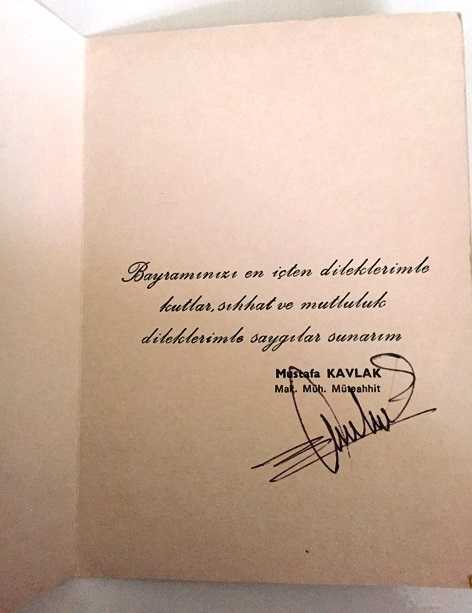 Bayramınızı en içten dileklerimle
kutlar, sıhhat ve mutluluk
dileklerimle saygılar sunarım
Mustafa KAVLAK
Mak. Müh. Müteahhit